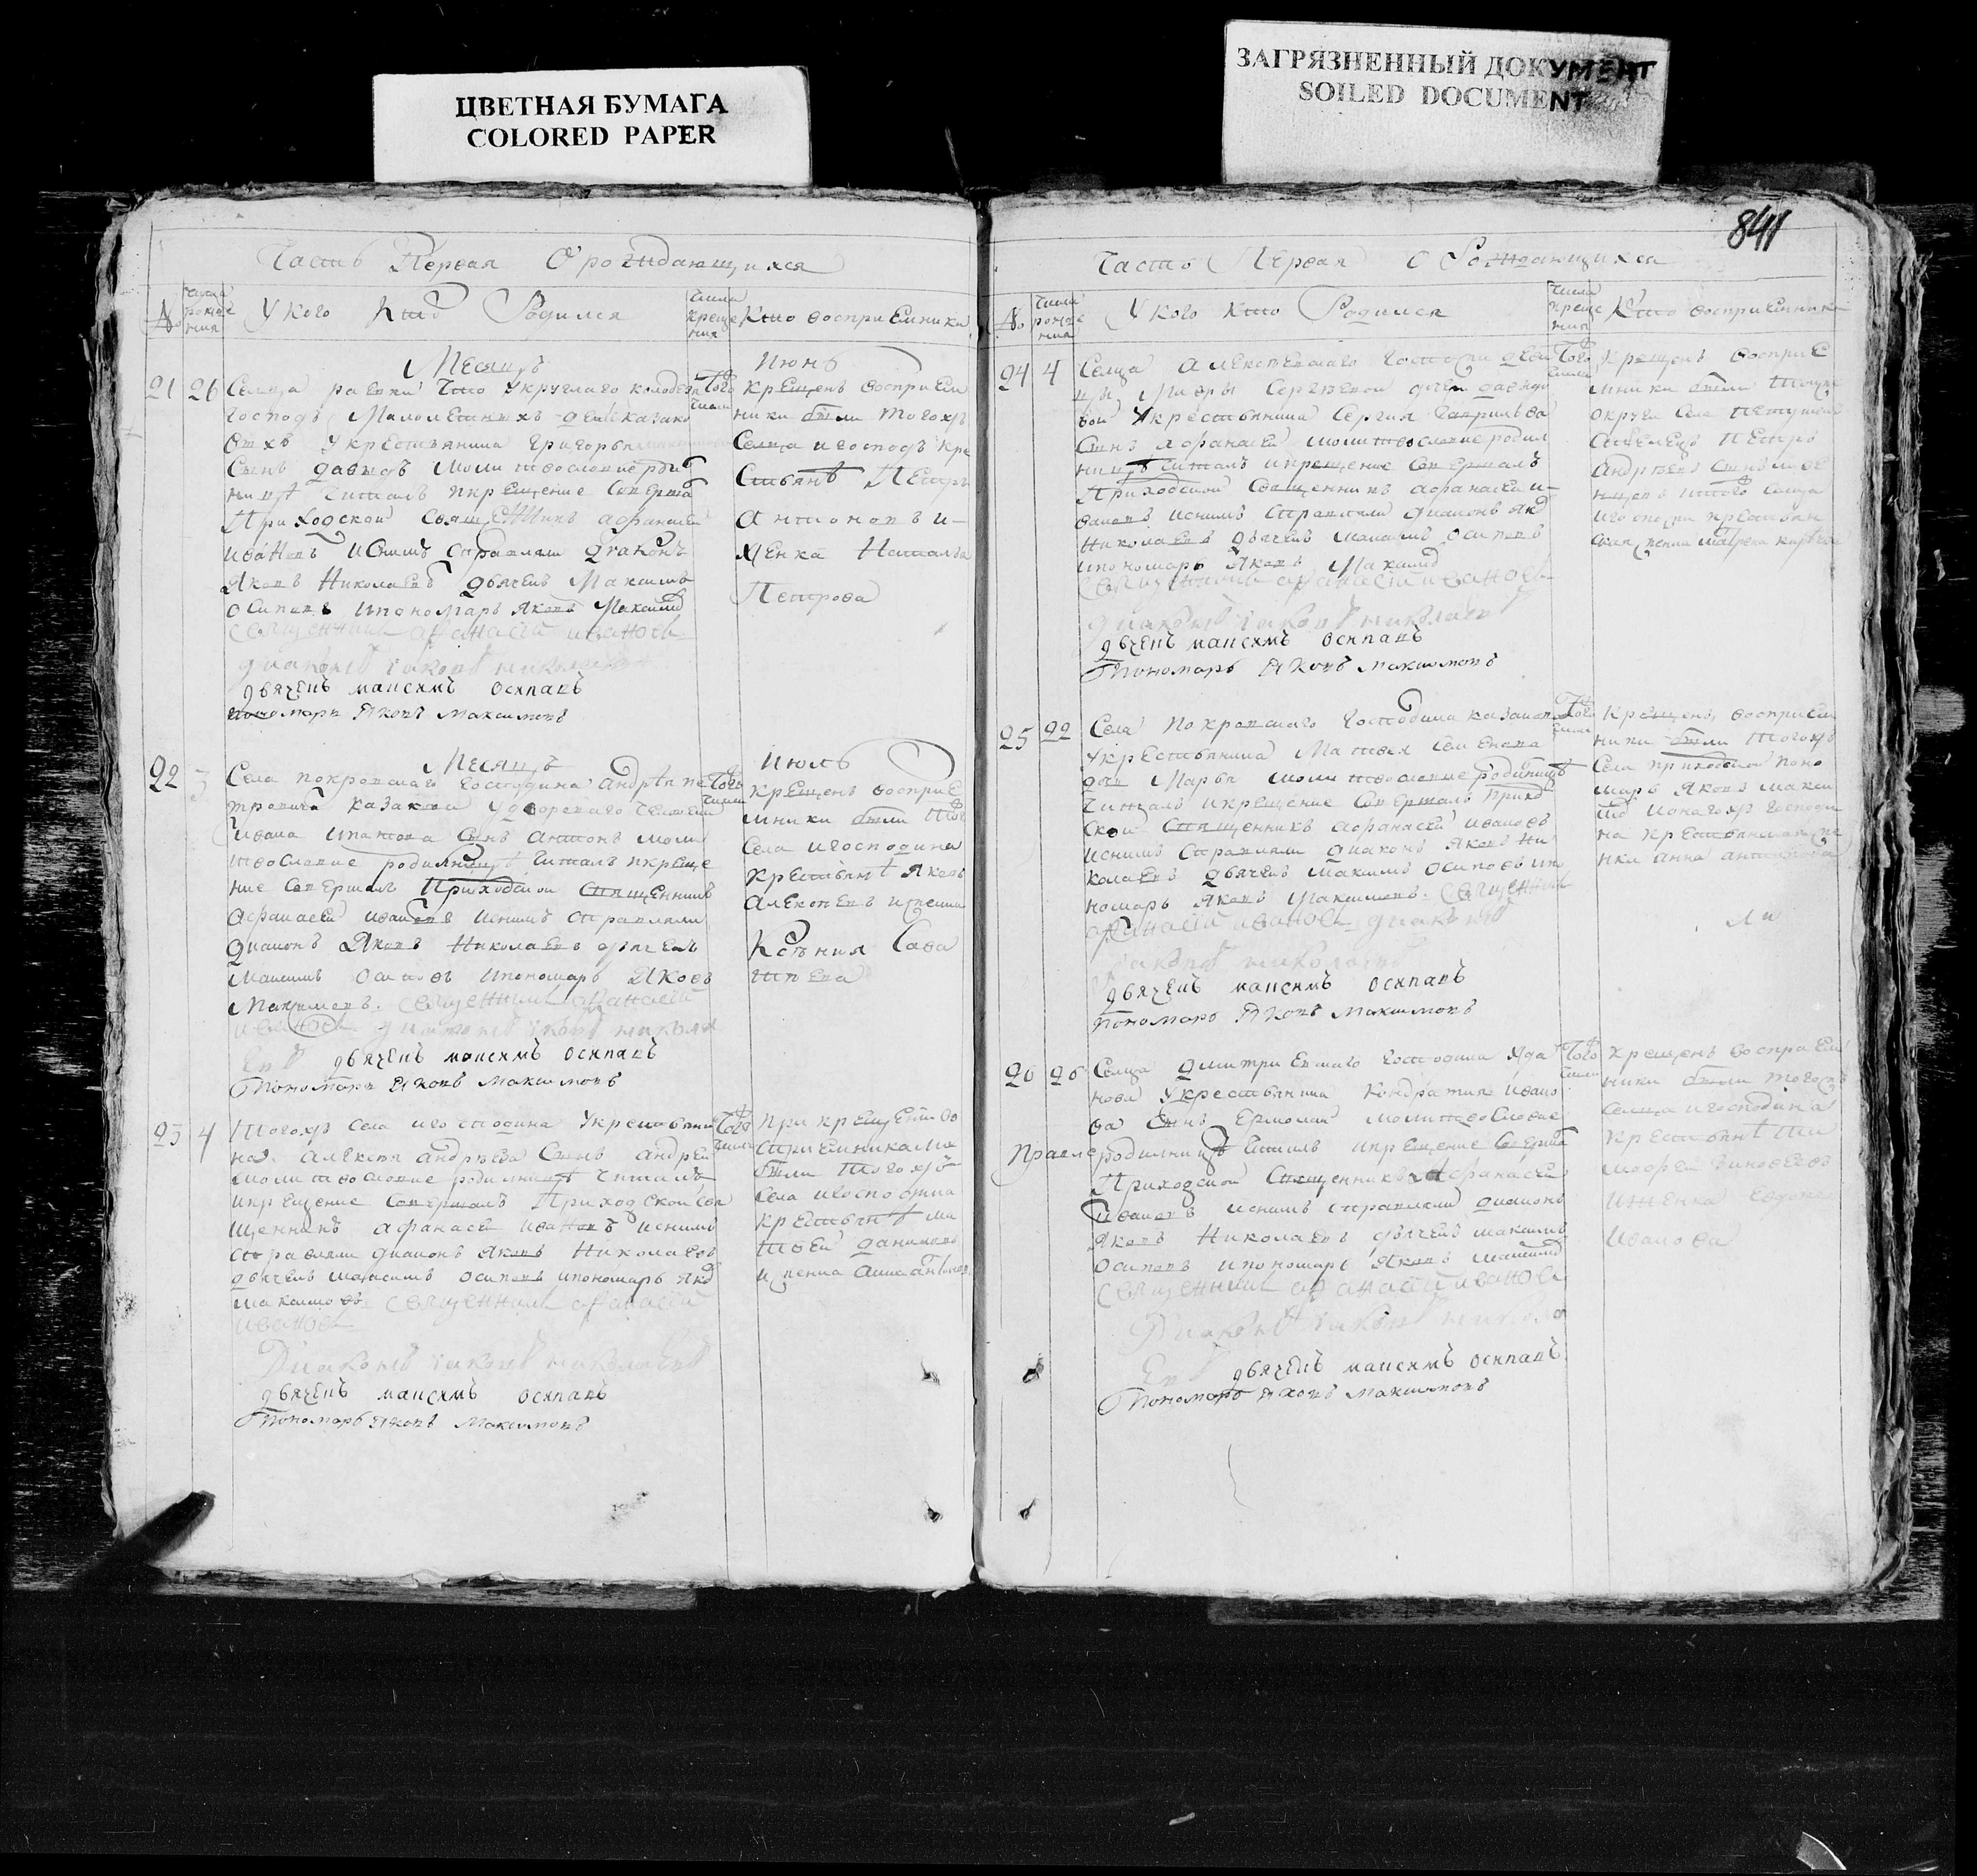 ЦВЕТНАЯ БУМАГА
COLORED PAPER
ЗАГРЯЗНЕННЫЙ ДОКУМЕНТ
SOILED DOCUMENT
841
Часть Первая О рождающихся
№
числа рожде ния
У кого Кто Родился
числа креще ния
Кто восприемники
Месяцъ Июнь
21 26
Сельца раевки что У круглаго колодезя
Господъ Малолетныхъ детей казако
выхъ У крестьянина Григорья
Сынъ давыдъ молитвословие роди
нице читалъ и крещение Соверша
Приходской Священникъ афанасей
ивановъ и Снимъ справляли диаконъ
Яковъ Николаевъ дьячекъ Максимъ
осиповъ и пономарь Яковъ Максимо
священникъ афанасий ивановъ
диаконъ иаковъ николаевъ
дьячекъ максимъ осиповъ
пономарь Яковъ Максимовъ
Того числа
крещенъ восприем
ники были тогожъ
Сельца и господъ кре
стьянѣ Петръ
антоновъ и
женка Наталья
Петрова
Месяцъ Июль
22 3
Села покровскаго Господина андрѣя пе
тровича казакова У двороваго человека
ивана ипатова Сынъ антонъ моли
твословие родильницѣ читалъ и креще
ние Совершалъ Приходской Священникъ
афанасей ивановъ и снимъ справляли
диаконъ Яковъ Николаевъ дьячекъ
максимъ осиповъ и пономарь Яковъ
Максимовъ. священникъ афанасий
ивановъ диаконъ иаковъ никола
евъ дьячекъ максимъ осиповъ
Пономарь Яковъ Максимовъ
Того числа
крещенъ восприе
мники были того
Села и господина
крестьянѣ Яковъ
алексеевъ и женка
Ксения Сава
тѣева
23 4
Тогожъ села и господина У крестьяни
на алексея андрѣева Сынъ андрей
молитвословие родильницѣ читалъ
и крещение Совершалъ Приходской Свя
щенникъ афанасей ивановъ и снимъ
справляли диаконъ Яковъ Николаевъ
дьячекъ максимъ осиповъ и пономарь Яко
максимовъ. священникъ афанасий
ивановъ
Диаконъ иаковъ николаевъ
дьячекъ максимъ осиповъ
Пономарь Яковъ Максимовъ
Того числа
При крещении во
сприемниками
были тогожъ
Села и господина
крестьянѣ ма
твей
и женка анна антонова
Часть Первая О Рождающихся
№
числа рожде ния
У кого Кто Родился
числа креще ния
Кто восприемники
24 4
Сельца алексеевскаго Госпожи деви
цы Сергѣевой дочери давыдо
вой У крестьянина Сергия Гаврильева
Сынъ афанасей молитвословие родил
ницѣ читалъ и крещение Совершалъ
Приходской Священникъ афанасей и
вановъ и снимъ справляли диаконъ Яко
Николаевъ дьячекъ максимъ осиповъ
и пономарь Яковъ Максимо
священникъ афанасий ивановъ
диаконъ иаковъ николаевъ
дьячекъ максимъ осиповъ
Пономарь Яковъ Максимовъ
Того числа
Крещенъ восприе
мники были
округи Села
Петръ
андрѣевъ сынъ
и того Сельца
и госпожи крестьян
Матрена
25 22
Села покровскаго Господина казакова
У крестьянина Матвея Семенова
дочь Марья молитвословие родильницѣ
читалъ и крещение Совершалъ прихо
ской Священникъ афанасей ивановъ
и снимъ справляли диаконъ Яковъ Ни
колаевъ дьячекъ Максимъ осиповъ и по
номарь Яковъ Максимовъ. священникъ
афанасий ивановъ диаконъ
иаковъ николаевъ
дьячекъ максимъ осиповъ
пономарь Яковъ Максимовъ
Того числа
Крещенъ, восприем
ники были тогожъ
Села приходской поно
марь Яковъ макси
мо и онагожъ господи
на крестьянская же
нка анна антонова
26 26
Сельца дмитриевскаго Господина Жда
нова У крестьянина Кондратия ивано
ва Сынъ Ермолай молитвословие
родильницѣ читалъ и крещение Соверша
Приходской Священникъ афанасей
ивановъ и снимъ справляли диаконъ
Яковъ Николаевъ дьячекъ максимъ
осиповъ и пономарь Яковъ максимо
священникъ афанасий ивановъ
Диаконъ иаковъ никола
евъ дьячекъ максимъ осиповъ
Пономарь Яковъ Максимовъ
Того числа
крещенъ восприем
ники были тогожъ
сельца и господина
крестьянѣ ти
мофей
и женка Евдокѣ
Иванова